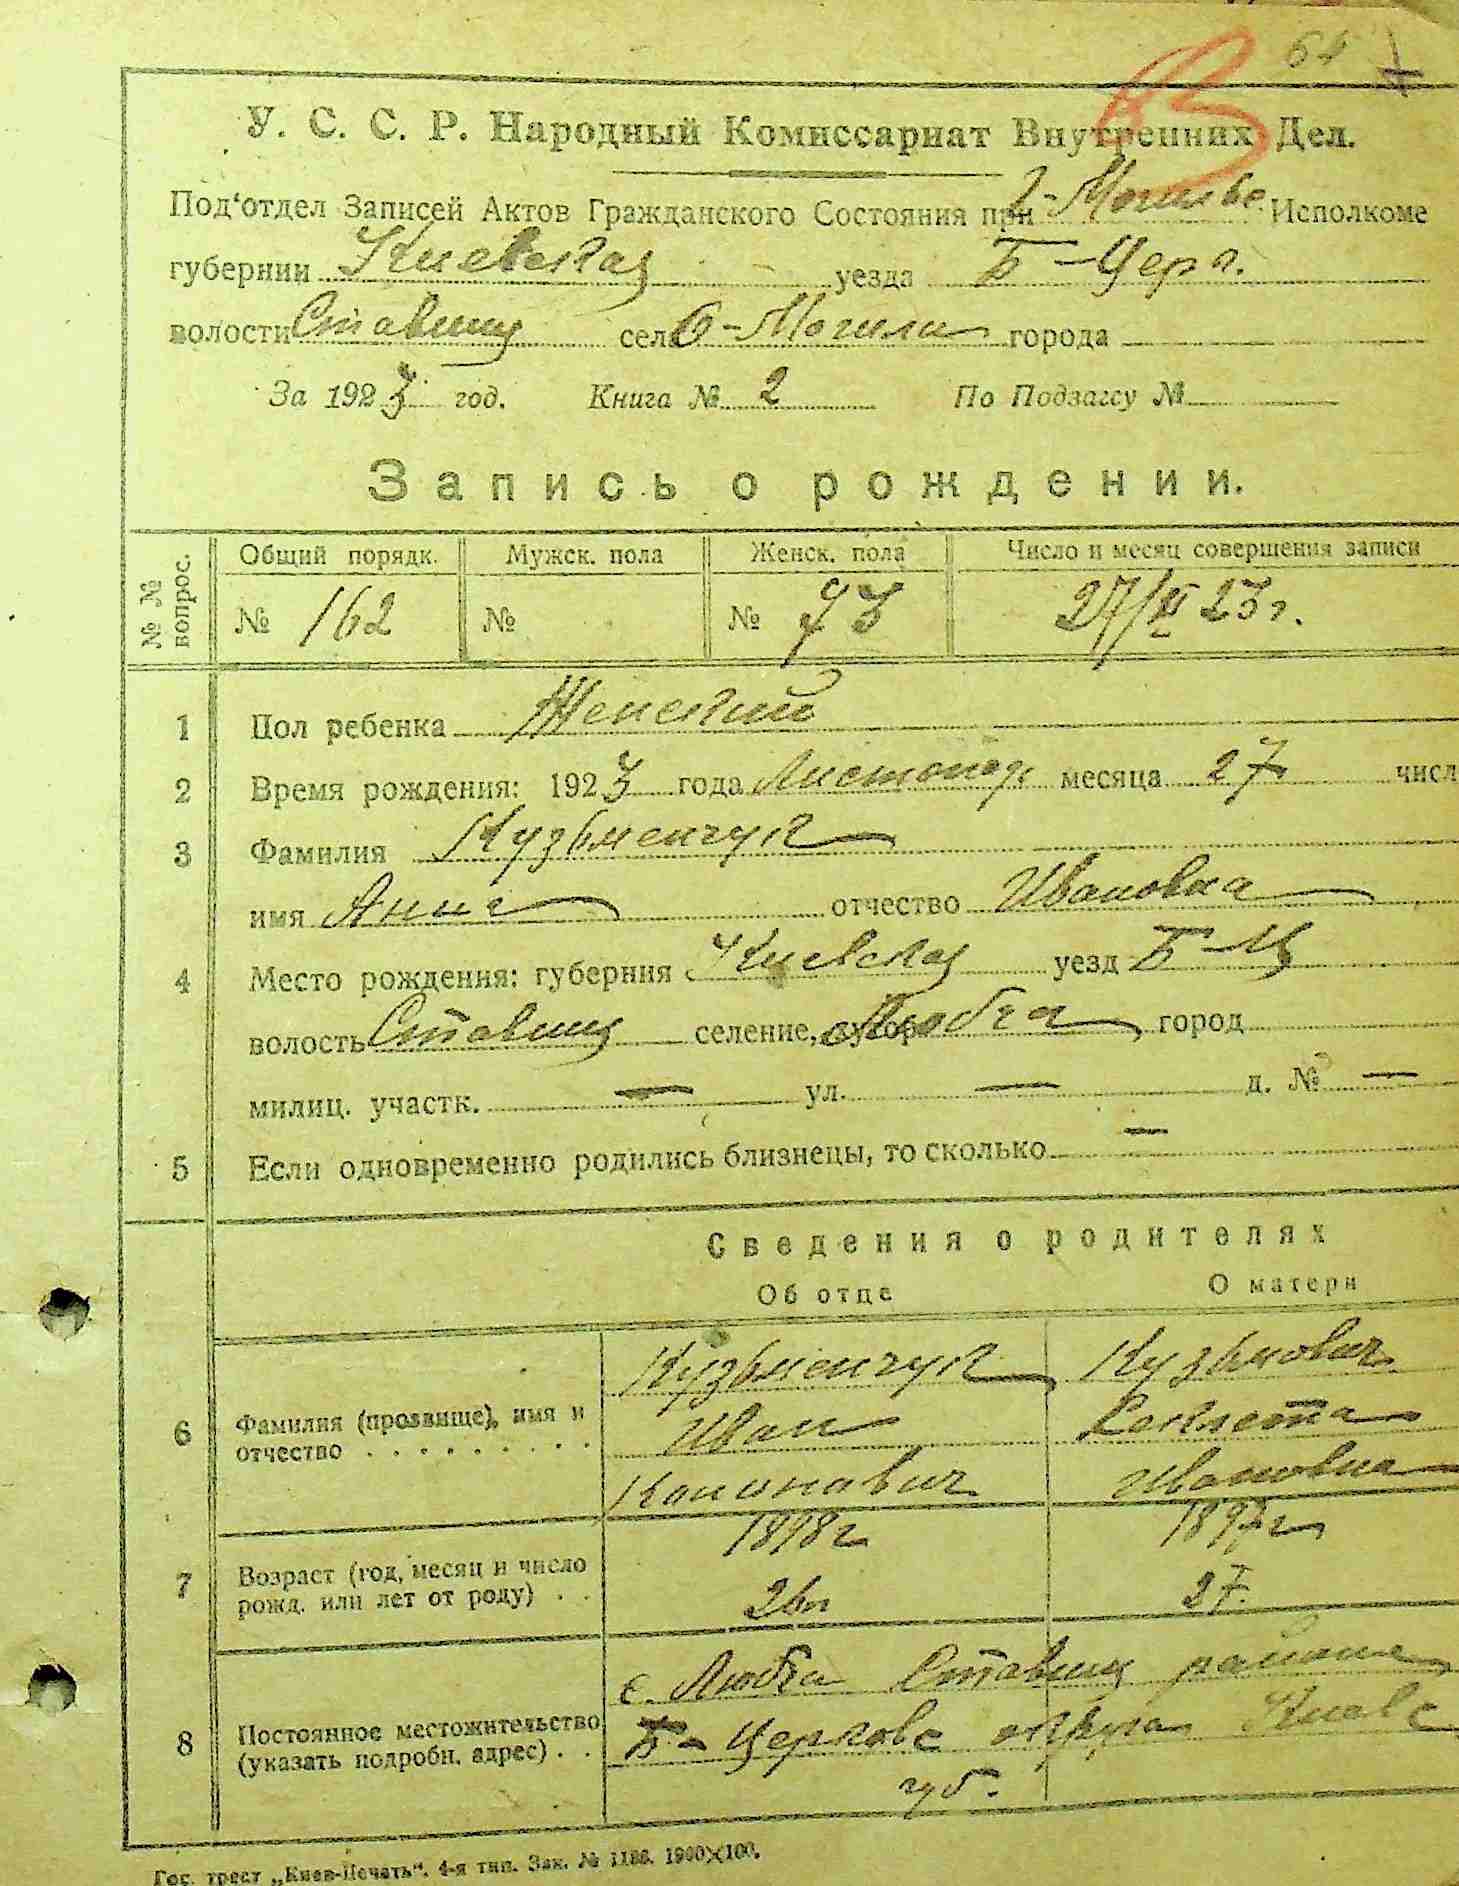 64
У. С. С. Р. Народный Комиссариат Внутренних Дел.
Под‘отдел Записей Актов Гражданского Состояния при Исполкоме
губернии Киевская уезда Б-Церк.
волости Ставищ села О-Могили города
За 1923 год. Книга № 2 По Подзагсу №
Запись о рождении.
№ № вопрос.
Общий порядк. Мужск. пола Женск. пола Число и месяц совершения записи
№ 162 № № 73 27/XI 23 г.
1 Пол ребенка Женский
2 Время рождения: 1923 года Листопад месяца 27 числ
3 Фамилия Кузьменчук
имя Анна отчество Ивановна
4 Место рождения: губерния Киевская уезд Б-Ц
волость Ставищ селение, хутор Любча город
милиц. участк. — ул. — д. № —
5 Если одновременно родились близнецы, то сколько —
Сведения о родителях
Об отце О матери
Кузьменчук Кузьмович
6 Фамилия (прозвище), имя и Иван Секлета
отчество . . . . . . . . . Кононавич Ивановна
1898 г 1897 г
7 Возраст (год, месяц и число
рожд. или лет от роду) . . 26 л 27.
с. Любча Ставищ района
8 Постоянное местожительство Б-Церковс округа Киевс
(указать подробн. адрес) . . губ.
Гос. трест „Киев-Печать“. 4-я тип. Зак. № 1186. 1900×100.